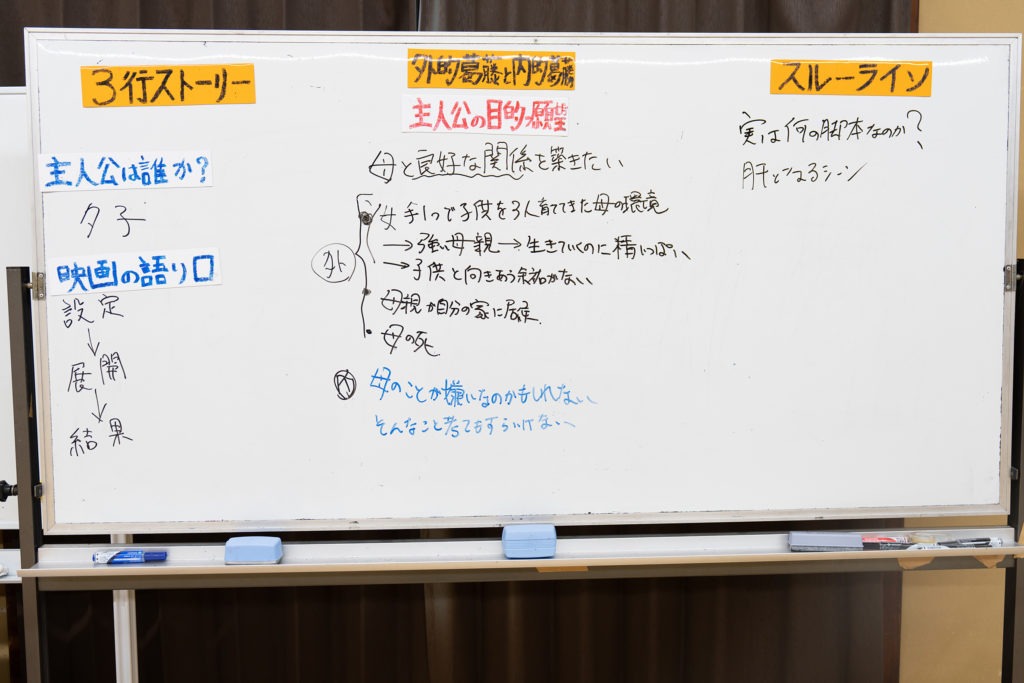 3行ストーリー
主人公は誰か?
夕子
映画の語り口
設定
↓
展開
↓
結果
外的葛藤と内的葛藤
主人公の目的・願望
母と良好な関係を築きたい
外
女手1つで子供を3人育ててきた母の環境
→強い母親→生きていくのに精いっぱい
→子供と向きあう余裕がない
母親が自分の家に居候
・母の死
内
母のことが嫌いなのかもしれない
そんなこと考えてもすらいけない
スルーライン
実は何の脚本なのか?
肝となるシーン